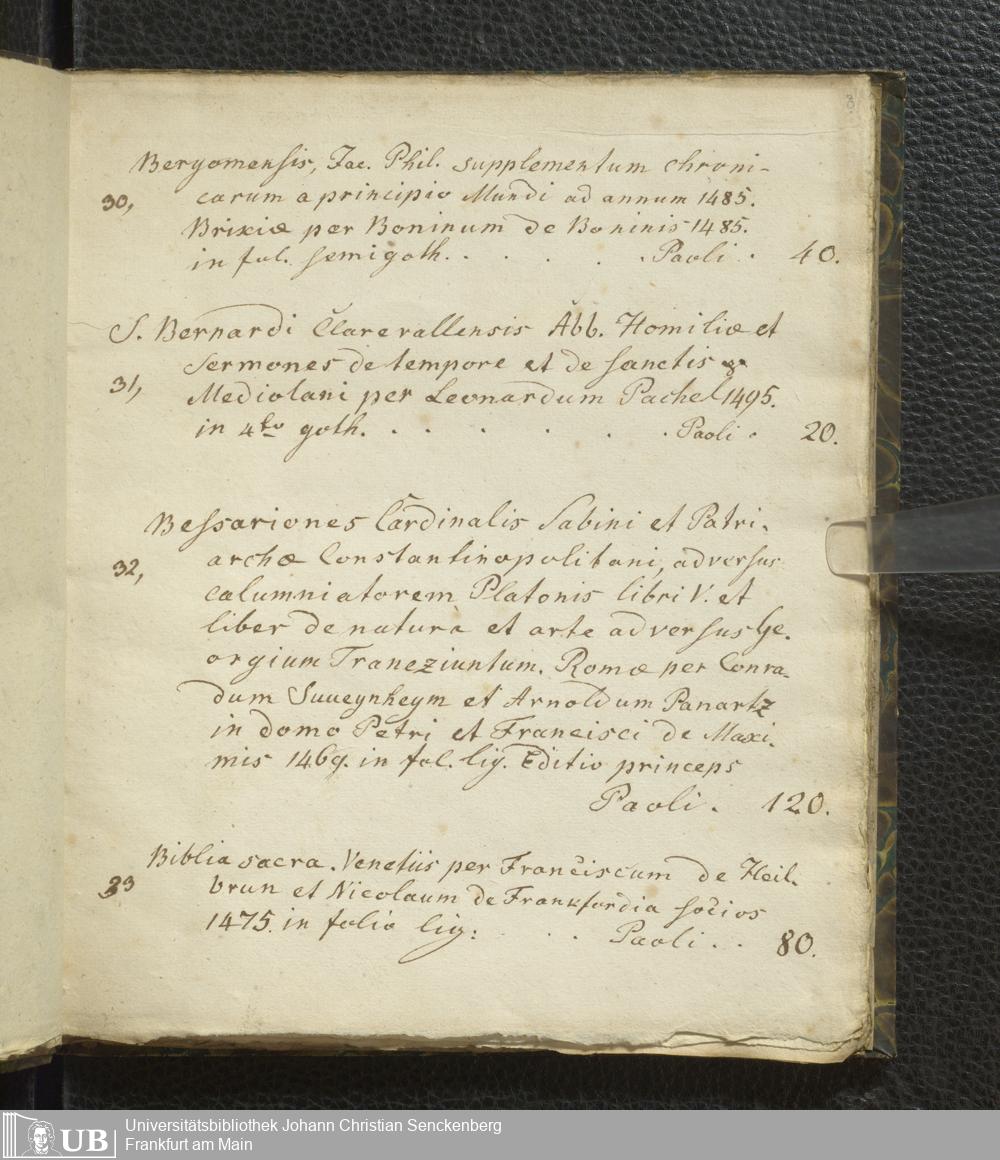 Bergomensis, Jac. Phil. supplementum chroni-
30, carum a principio Mundi ad annum 1485.
Brixiæ per Boninum de Boninis 1485.
in fol. semigoth. . . . . . . Paoli . 40.
S. Bernardi Clarevallensis Abb. Homiliæ et
Sermones de tempore et de sanctis
31, Mediolani per Leonardum Pachel 1495.
in 4to goth. . . . . . . Paoli . 20.
Bessariones Cardinalis Sabini et Patri-
archæ Constantinopolitani, adversus
32, calumniatorem Platonis libri V. et
liber de natura et arte adversus Ge-
orgium Traneziuntum. Romæ per Conra-
dum Suueynheym et Arnoldum Panartz
in domo Petri et Francisci de Maxi-
mis 1469. in fol. lig. Editio princeps
Paoli . 120.
Biblia sacra. Venetiis per Franciscum de Heil-
33 brun et Nicolaum de Frankfordia socios
1475. in folio lig: . . . Paoli . . 80.
UB
Universitätsbibliothek Johann Christian Senckenberg
Frankfurt am Main